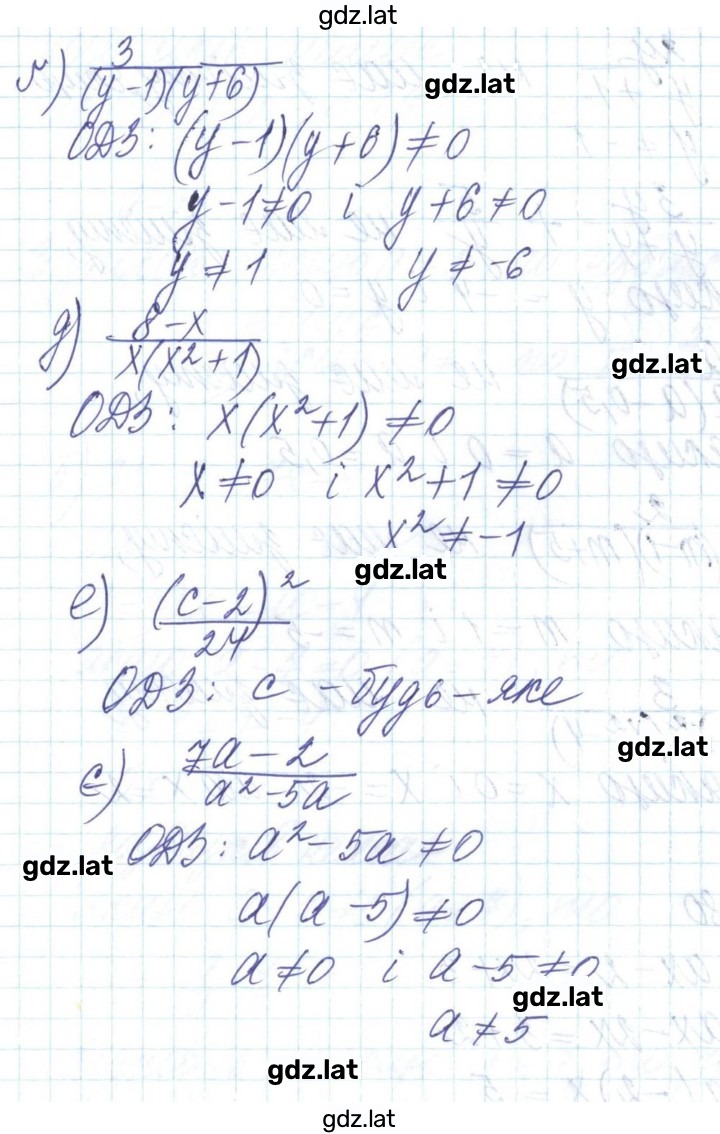 gdz.lat
г) 3/((y-1)(y+6))
gdz.lat
ОДЗ: (y-1)(y+6)≠0
y-1≠0 і y+6≠0
y≠1 y≠-6
д) (8-x)/(x(x²+1))
gdz.lat
ОДЗ: x(x²+1)≠0
x≠0 і x²+1≠0
x²≠-1
gdz.lat
е) (c-2)²/24
ОДЗ: c - будь-яке
gdz.lat
є) (7a-2)/(a²-5a)
ОДЗ: a²-5a≠0
gdz.lat
a(a-5)≠0
a≠0 і a-5≠0
gdz.lat
a≠5
gdz.lat
gdz.lat